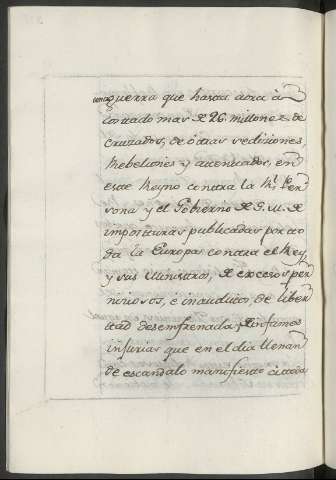 una guerra que hasta aora à
costado mas de 26. millones de
Cruzados; de otras sediciones,
Rebeliones y atentados, en
este Reyno contra la Rl. Per
sona y el Gobierno de S. M. de
imposturas publicadas por to
da la Europa contra el Rey,
y sus Ministros, de excesos per
niciosos, e inauditos, de liber
tad desenfrenada, de infames
injurias que en el dia llenan
de escandalo manifiesto à toda